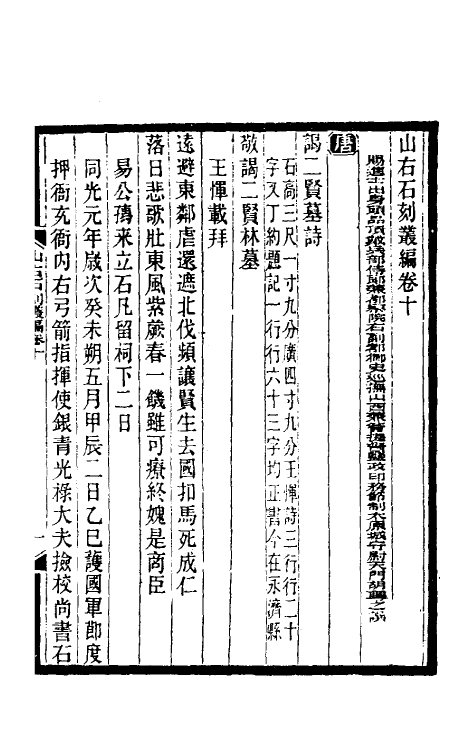 山右石刻叢編卷十
賜進士出身頭品頂戴兵部侍郎兼都察院右副都御史巡撫山西兼管提督鹽政印務節制太原城守尉天門胡聘之編
唐
謁二賢墓詩
石高三尺一寸九分廣四寸九分王惲詩三行行二十
字又丁約題記一行行六十三字均正書今在永濟縣
敬謁二賢林墓
王惲載拜
遠避東鄰虐還遮北伐頻讓賢生去國扣馬死成仁
落日悲歌壯東風紫蕨春一饑雖可療終媿是商臣
易公璹來立石凡留祠下二日
同光元年歲次癸未朔五月甲辰二日乙巳護國軍節度
押衙充衙內右弓箭指揮使銀青光祿大夫撿校尚書石
山右石刻叢編卷十
一